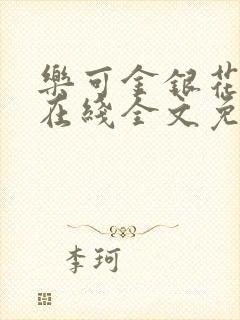 樂可金銀花
在綫全文免
李珂